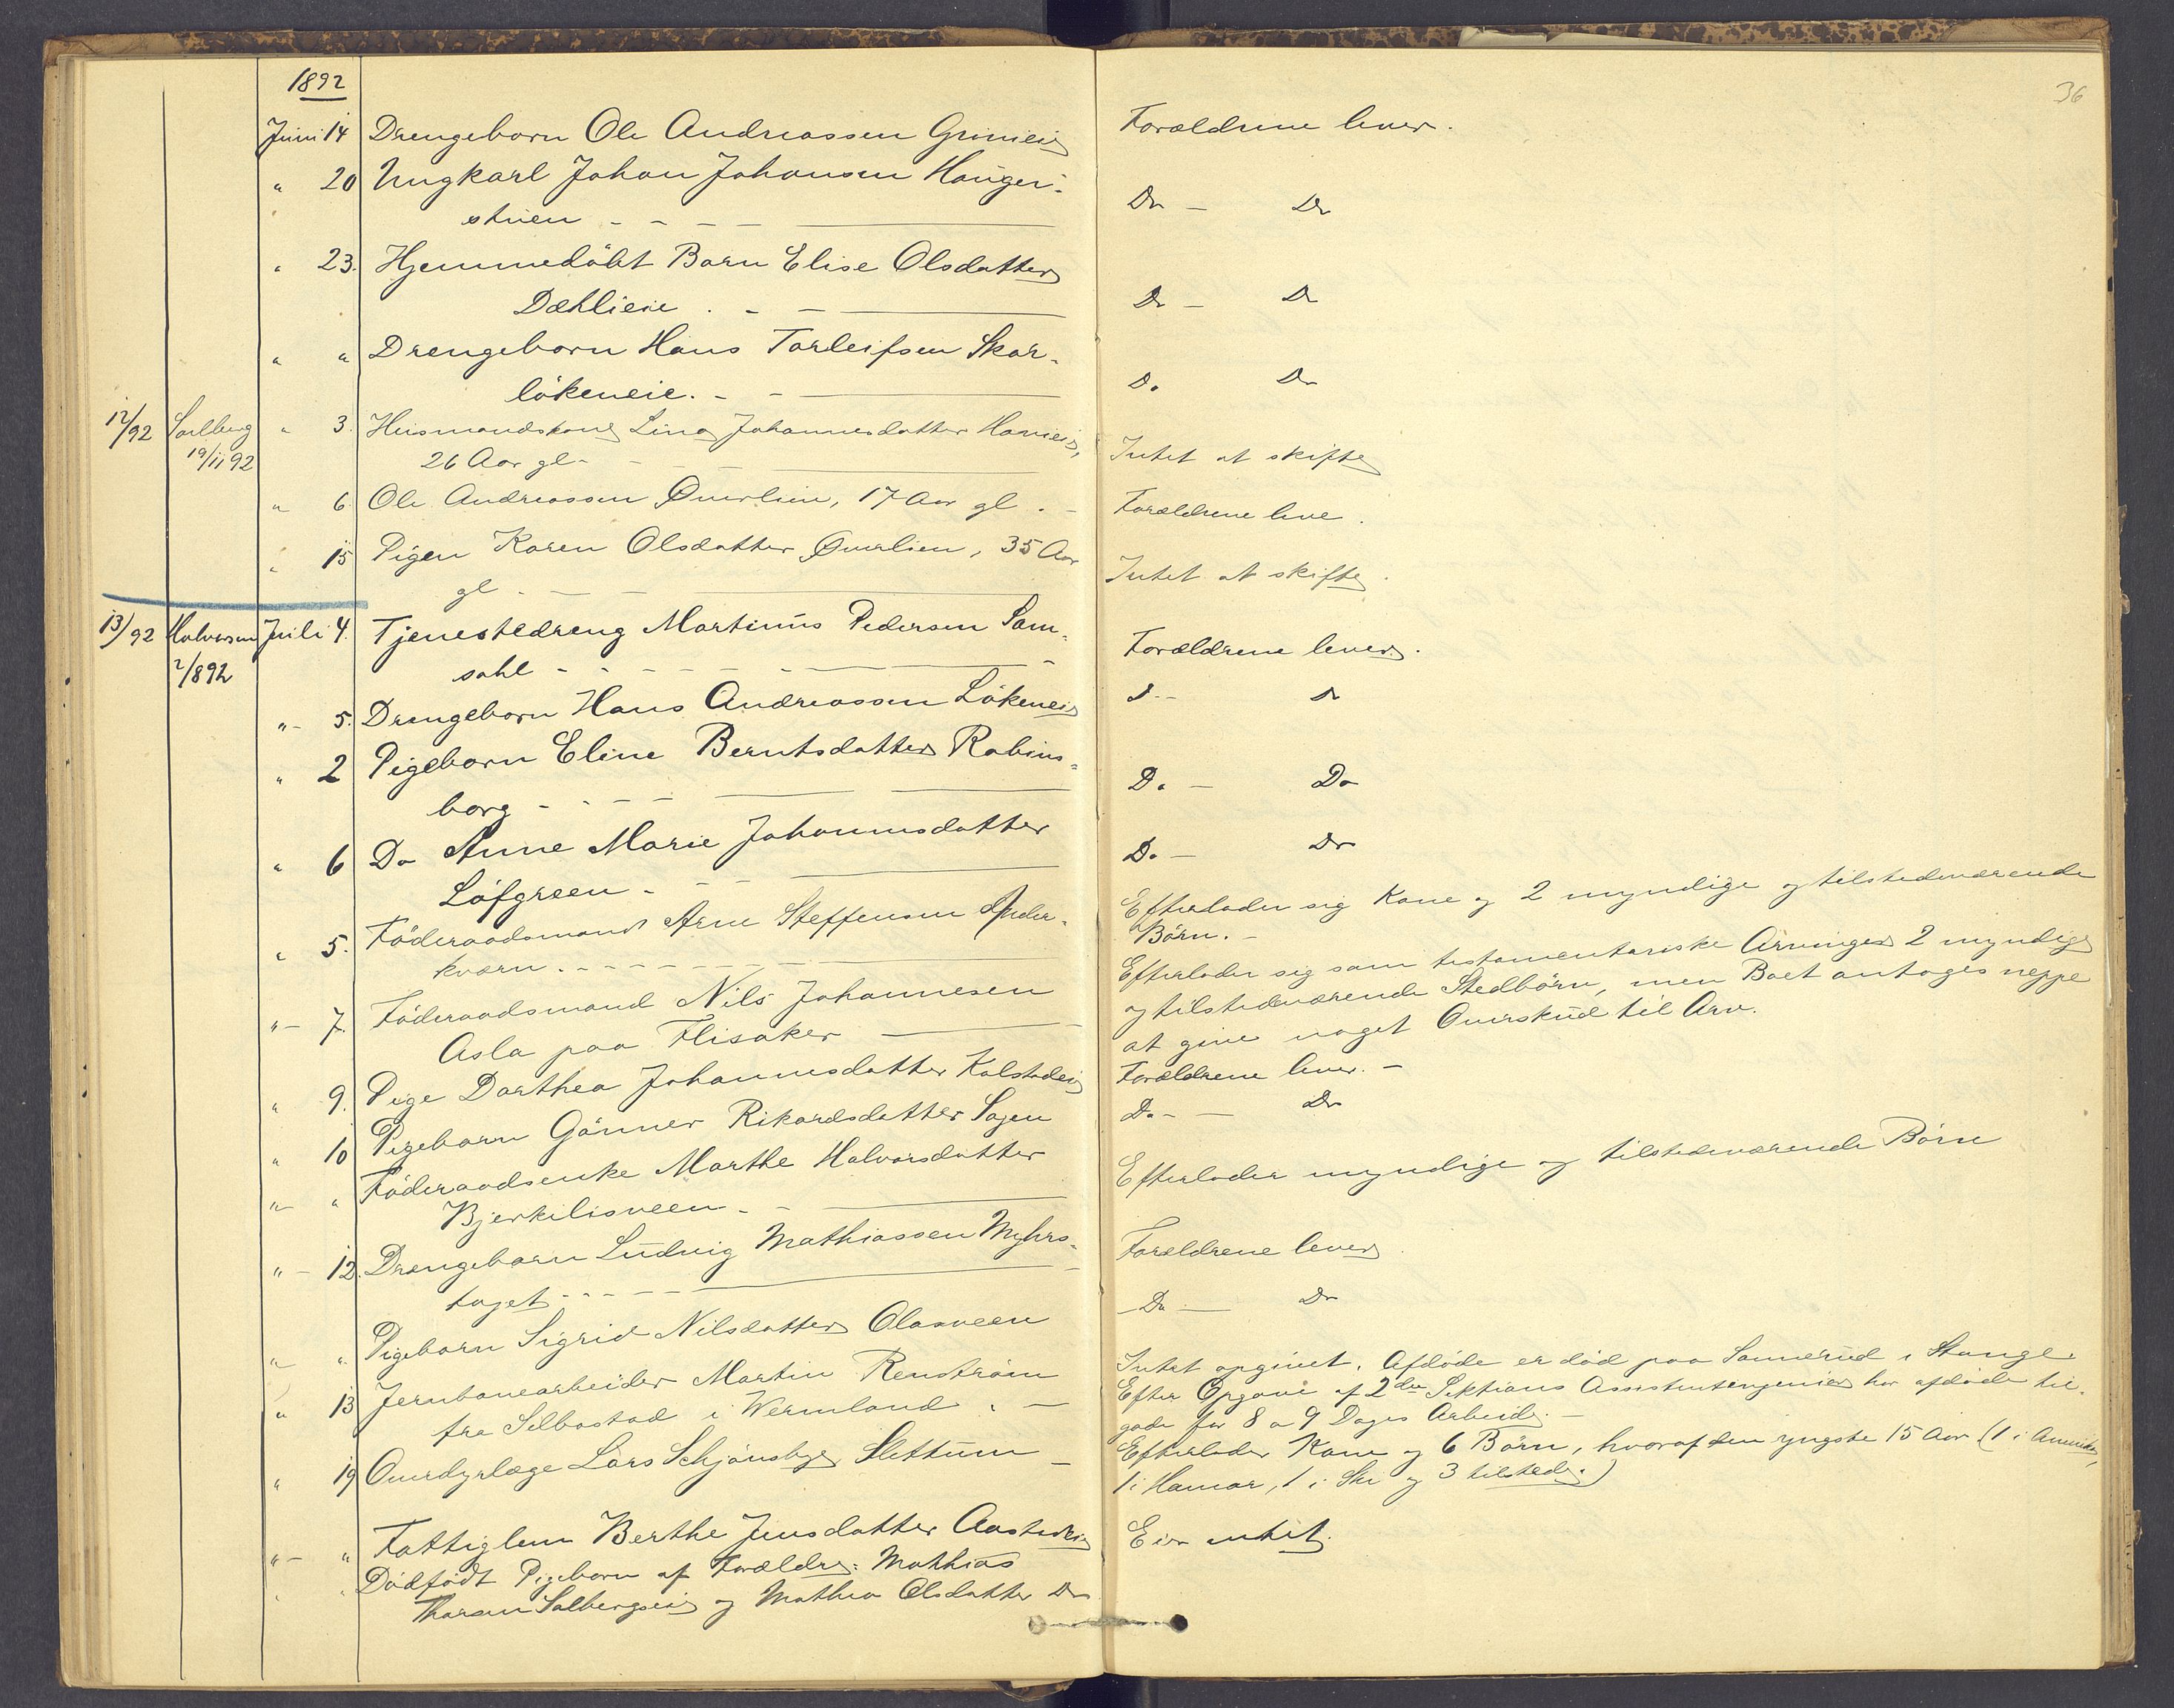 1892
36
Juni 14 Drengebarn Ole Andreassen Grimeie
Forældrene lever.
" 20 Ungkarl Johan Johansen Hauger-
stuen - - - -
Do - Do
" 23. Hjemmedöbt Barn Elise Olsdatter
Dæhlieie . - -
Do - Do
" " Drengebarn Hans Torleifsen Skar-
lökeneie. - -
Do Do
12/92 Solberg " 3. Husmandskone Lina Johannesdatter
19/11 92 26 Aar gl - - -
Intet at skifte
" 6 Ole Andreassen Øverlien, 17 Aar gl . -
Forældrene leve.
" 15 Pigen Karen Olsdatter Øverlien, 35 Aar
gl - - -
Intet at skifte.
13/92 Halvorsen Juli 4. Tjenestedreng Martinus Pedersen Sam-
2/892 sahl - - - -
Forældrene lever.
" - 5. Drengebarn Hans Andreassen Lökeneie
D - D
" 2 Pigebarn Eline Berntsdatter Robins-
borg - - - -
Do - Do
" 6 Do Anne Marie Johannesdatter
Löfgreen - - -
Do - Do
" 5. Föderaadsmand Arne Steffensen
kværn . - - -
Efterlader sig Kone og 2 myndige og tilstedeværende
Börn. -
" - 7. Föderaadsmand Nils Johannesen
Asla paa Flisaker
Efterlader sig som testamentariske Arvinger 2 myndige
og tilstedeværende Stedbörn, men Boet antages neppe
at give noget Overskud til Arv.
" 9. Pige Dorthea Johannesdatter Kolstadeie
Forældrene lever. -
" 10 Pigebarn Gönner Rikardsdatter Sagen
Do - - Do
" - " Föderaadsenke Marthe Halvorsdatter
Bjerkilisveen - -
Efterlader myndige og tilstedeværende Börn
" - 12. Drengebarn Ludvig Mathiassen Myhrs-
taget - - - -
Forældrene lever.
" - " Pigebarn Sigrid Nilsdatter Olasveen
- Do - Do
" 13 Jernbanearbeider Martin Renström
fra Silbostad i Wermland . -
Intet opgivet. Afdöde er död paa Sannerud i Stange.
Efter Opgave af 2den Sektions Assistentingeniør har afdöde til-
gode for 8 a 9 Dages Arbeide. -
" 19 Overdyrlæge Lars Schjönsby Slettum -
Efterlader Kone og 6 Börn, hvoraf den yngste 15 Aar (1 i Amerika,
1 i Hamar, 1 i Ski og 3 tilstede.)
" - " Fattiglem Berthe Jensdatter
Eier intet.
" " Dödfödt Pigebarn af Forældre: Mathias
Thorsen Solbergeie og Mathea Olsdatter Do